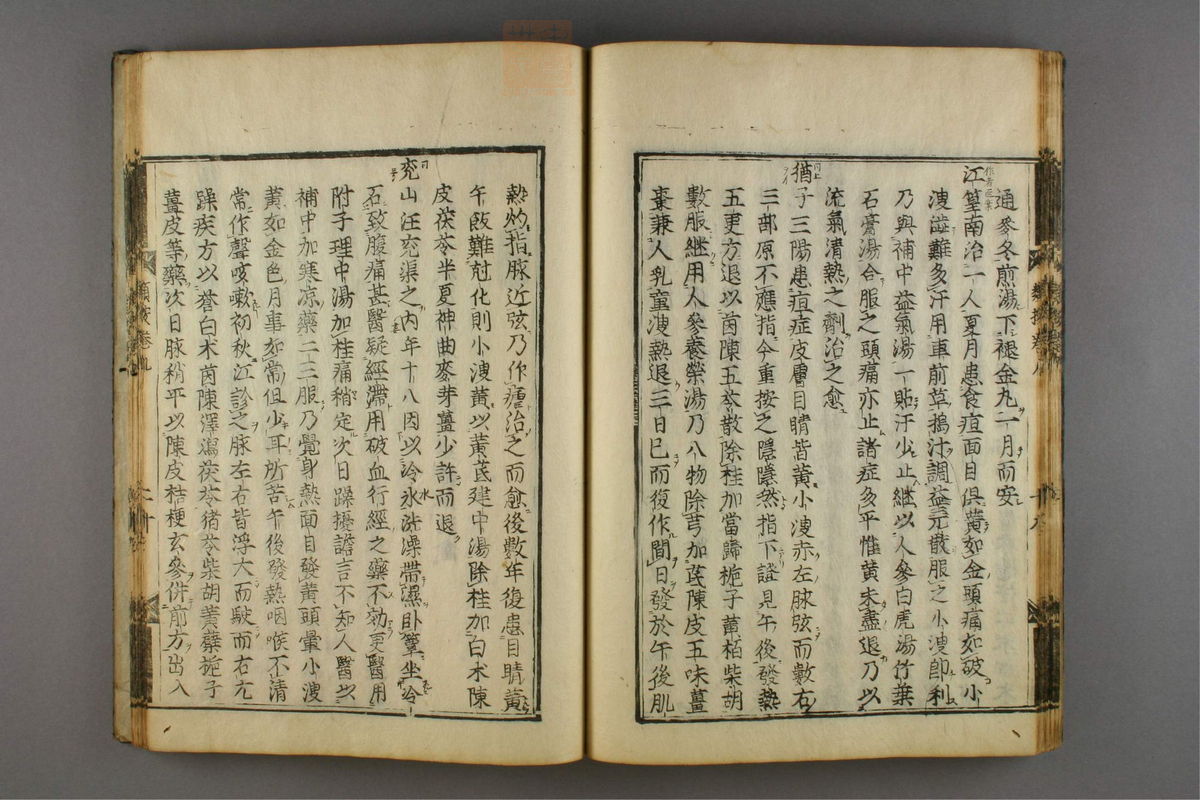 通參冬煎湯下褪金九二月而安
江篁南治一人夏月患食疸面目俱黃如金頭痛如破小
溲澁難多汗用車前草搗汁調益元散服之小溲即利
乃與補中益氣湯一貼汗少止継以人參白虎湯竹葉
石膏湯合服之頭痛亦止諸症多平惟黄未盡退乃以
流氣清熱之劑治之愈
猶子三陽患疸症皮膚目睛皆黄小溲赤左脉弦而數右
三部原不應指今重按之隱隱然指下證見午後發熱
五更方退以茵陳五苓散除桂加當歸梔子黄栢柴胡
數服継用人參養榮湯乃八物除芎加芪陳皮五味薑
棗兼人乳童溲熱退三日已而復作間日發於午後肌
熱灼指脉近弦乃作瘧治之而愈後數年復患目睛黄
午飯難尅化則小溲黄以黄芪建中湯除桂加白术陳
皮茯苓半夏神曲麥芽薑少許而退
兖山汪兖渠之内年十八因以冷水洗澡帶濕卧簟坐冷
石致腹痛甚醫疑經滯用破血行經之藥不効更醫用
附子理中湯加桂痛稍定次日躁擾譫言不知人醫以
補中加寒凉藥二三服乃覺身熱面目發黄頭暈小溲
黄如金色月事如常但少耳所苦午後發熱咽喉不清
常作聲咳嗽初秋江診之脉左右皆浮大而駛而右尤
躁疾方以當白术茵陳澤瀉茯苓猪苓柴胡黄蘗梔子
薑皮等藥次日脉稍平以陳皮桔梗玄參併前方出入